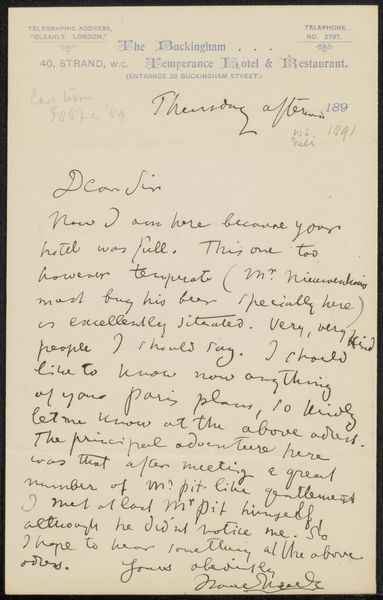 TELEGRAPHIC ADDRESS,
"CLEANLY, LONDON."
TELEPHONE
NO. 2797.
The Buckingham . . .
40, STRAND, W.C. Temperance Hotel & Restaurant.
(ENTRANCE 28 BUCKINGHAM STREET.)
Thursday 189
1891
Dear Sir
Now I am here because your
hotel was full. This one too
however temperate (Mr
must buy his beer specially here)
is excellently situated. Very, very kind
people I should say. I should
like to know now anything
of your Paris plans, so kindly
let me know at the above adress.
The principal adventure here
was that after meeting a great
number of Mr Pit like gentlemen
I met at last Mr Pit himself
although he didnt notice me. So
I hope to hear something at the above
adress.
Yours obediently